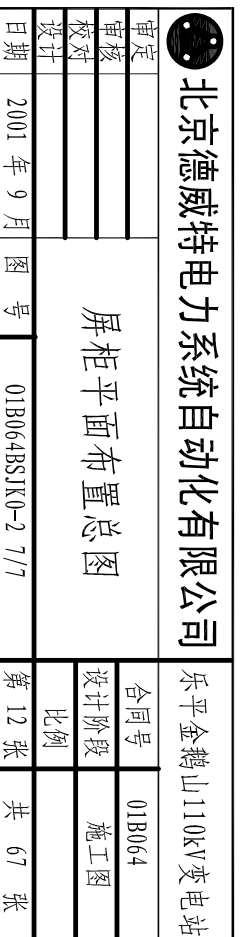 北京德威特电力系统自动化有限公司
乐平金鹅山110kV变电站
审定
审核
校对
设计
屏柜平面布置总图
合同号 01B064
设计阶段 施工图
比例
日期 2001 年 9 月 图 号 01B064BSJK0-2 7/7 第 12 张 共 67 张